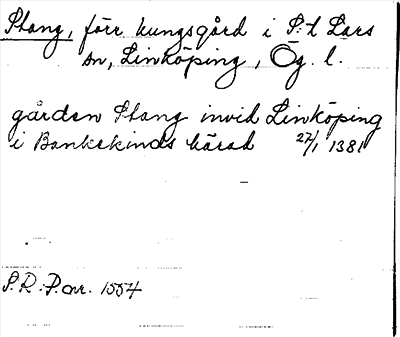 Stang, förr kungsgård i S:t Lars
sn, Linköping, Ög. l.
gården Stang invid Linköping
i Bankekinds härad 27/1 1381
S.R.:P. nr. 1554